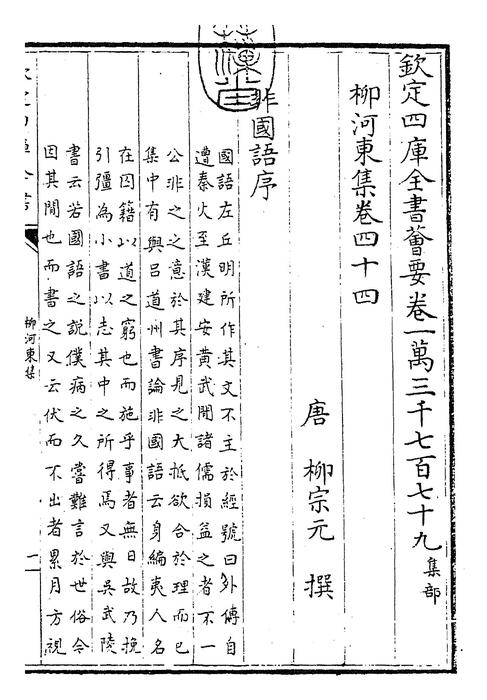 欽定四庫全書薈要卷一萬三千七百七十九集部
柳河東集卷四十四
唐 柳宗元 撰
非國語序
國語左丘明所作其文不主於經號曰外傳自
遭秦火至漢建安黃武間諸儒損益之者不一
公非之之意於其序見之大抵欲合於理而已
集中有與呂道州書論非國語云身編夷人名
在囚籍以道之窮也而施乎事者無日故乃挽
引彊為小書以志其中之所得焉又與吳武陵
書云若國語之說僕病之久嘗難言於世俗今
因其閒也而書之又云伏而不出者累月方視
柳河東集
一